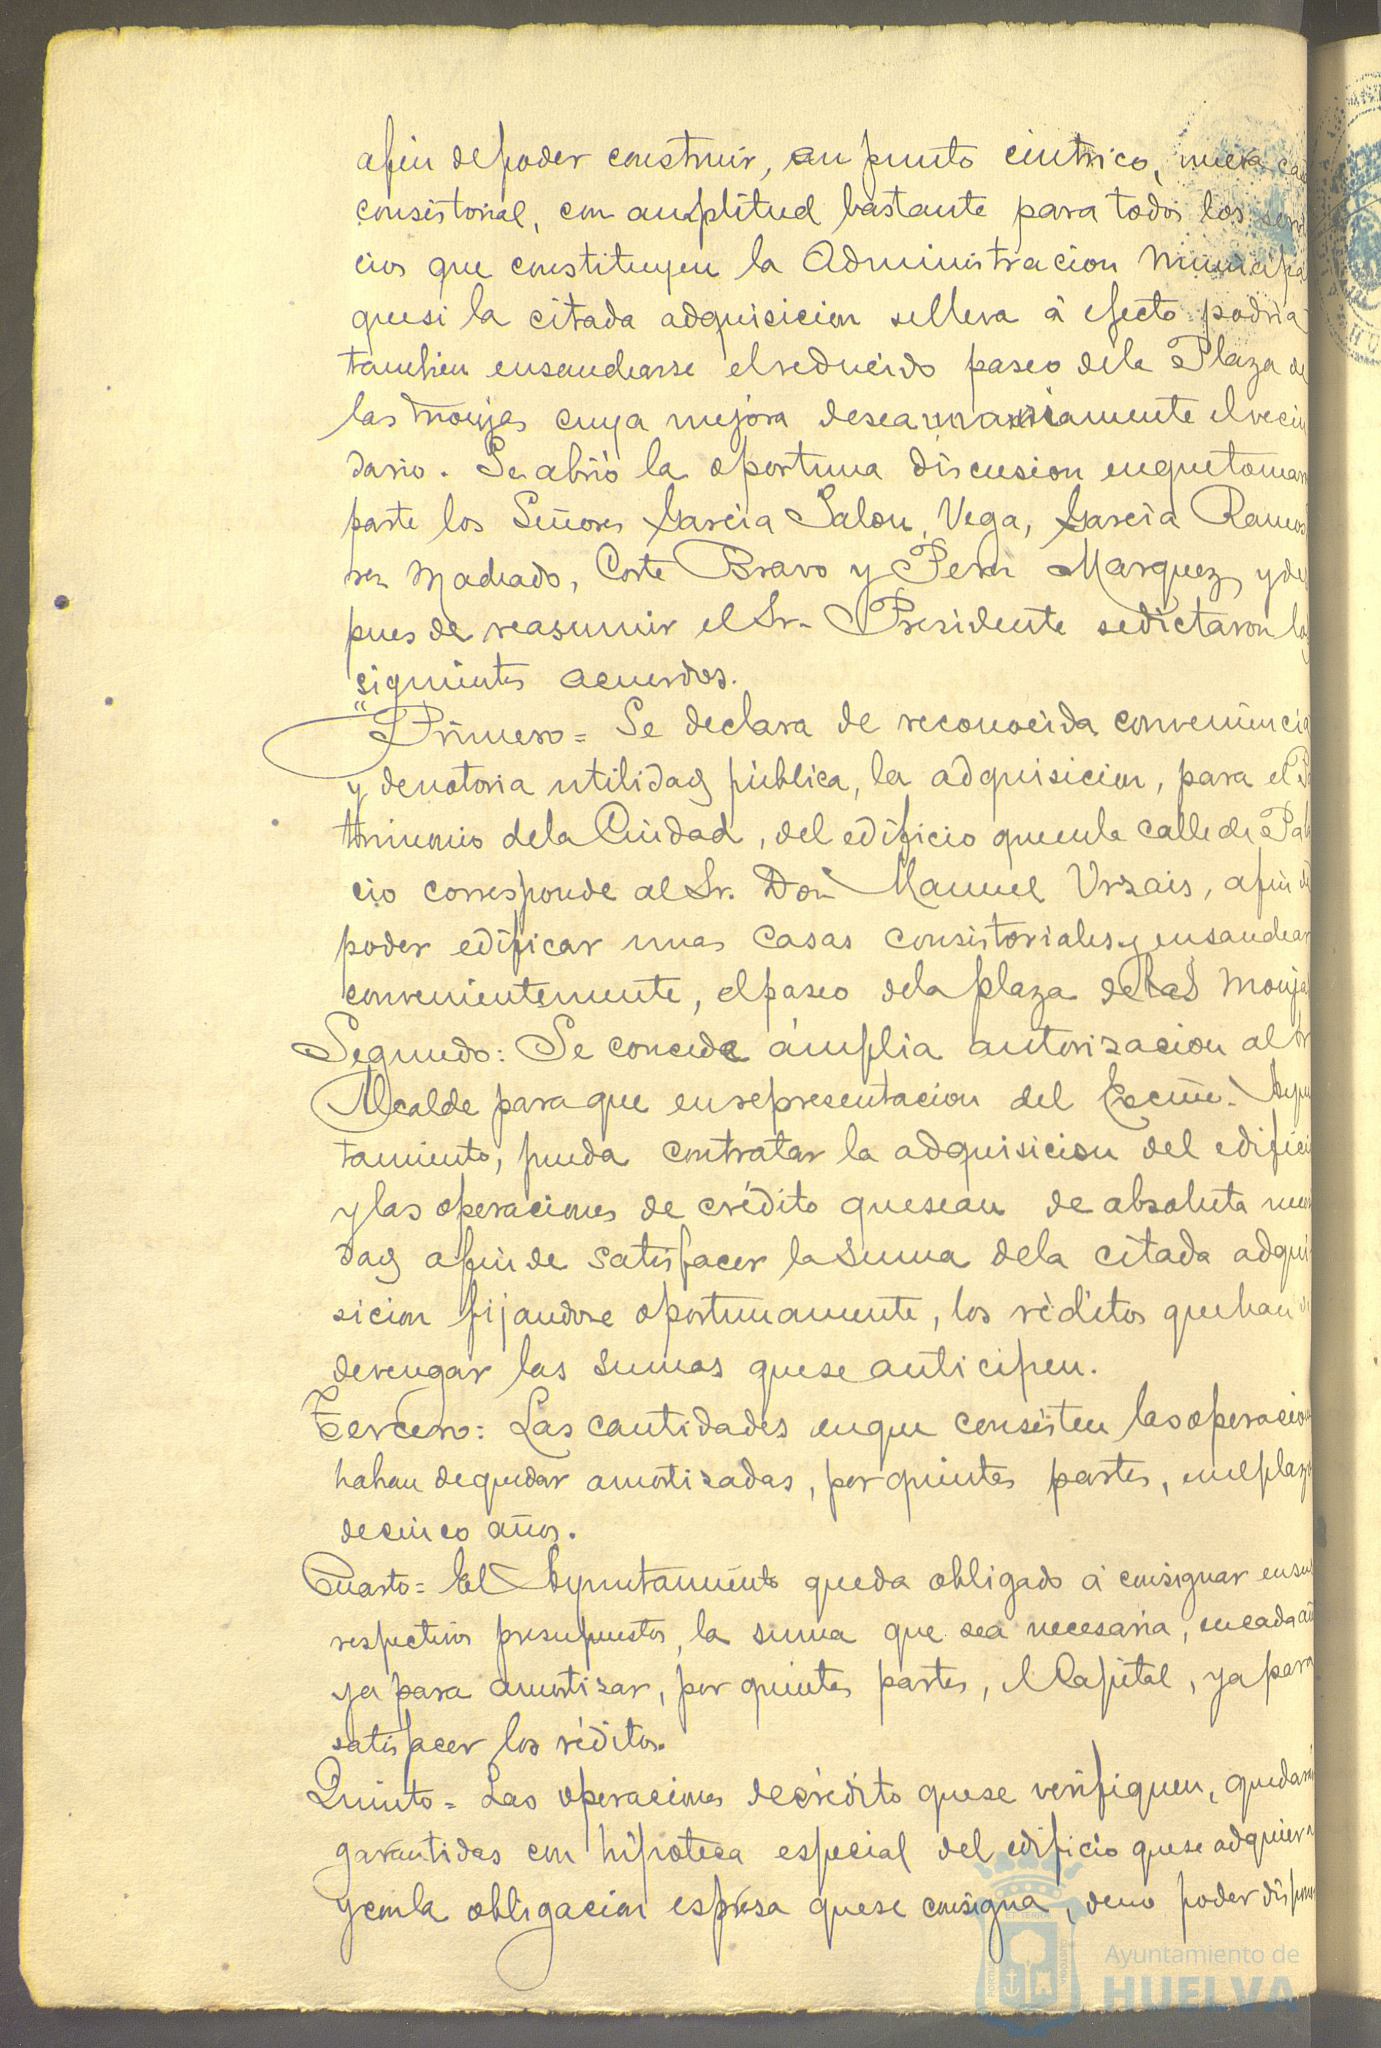 afin de poder construir, en punto céntrico, nueva ca
consistorial, con amplitud bastante para todos los servi
cios que constituyen la Administracion Municipa
que si la citada adquisicion se lleva á efecto podria
tambien ensancharse el reducido paseo de la Plaza de
las Monjas cuya mejora desea unanimamente el vecin
dario. Se abrió la oportuna discusion en que tomaron
parte los Señores García Jalon, Vega, García Ramos
Machado, Corte Bravo y Perez Marquez, y des
pues de reasumir el Sr. Presidente se dictaron los
siguientes acuerdos.
"Primero = Se declara de reconocida conveniencia
y de notoria utilidad pública, la adquisicion, para el Pa
trimonio de la Ciudad, del edificio que en la calle de Pala
cio corresponde al Sr. Don Manuel Urzais, afin de
poder edificar unas casas consistoriales y ensanchar
convenientemente, el paseo de la plaza de las Monjas
Segundo: Se concede ámplia autorizacion al Sr
Alcalde para que en representacion del Excmo. Ayun
tamiento, pueda contratar la adquisicion del edificio
y las operaciones de crédito que sean de absoluta nece
dad afin de satisfacer la suma de la citada adqui
sicion fijandose oportunamente, los réditos que han de
devengar las sumas que se anticipen.
Tercero: Las cantidades en que consisten las operacion
habian de quedar amortizadas, por quintas partes, en el plazo
de cinco años.
Cuarto = El Ayuntamiento queda obligado á consignar en sus
respectivos presupuestos, la suma que sea necesaria, en cada año
ya para amortizar, por quintas partes, el Capital, ya para
satisfacer los réditos.
Quinto = Las operaciones de crédito que se verifiquen, quedarán
garantidas con hipoteca especial del edificio que se adquiera
y con la obligacion espresa que se consigna, de no poder dispone
Ayuntamiento de
HUELVA